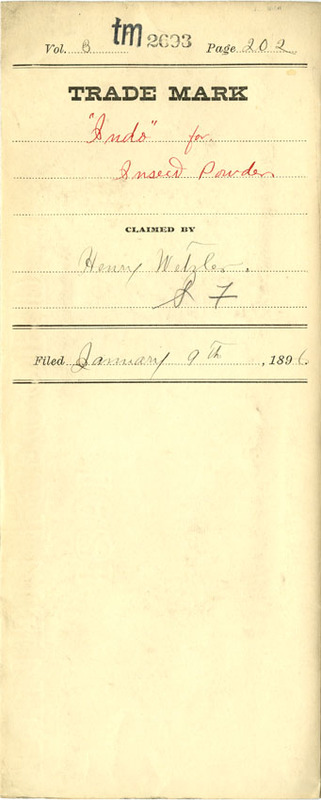 Vol. 8 tm 2693 Page 202
TRADE MARK
"Ando" for
Insect Powder
CLAIMED BY
Henry Wetzler.
S F
Filed January 9th, 1896.